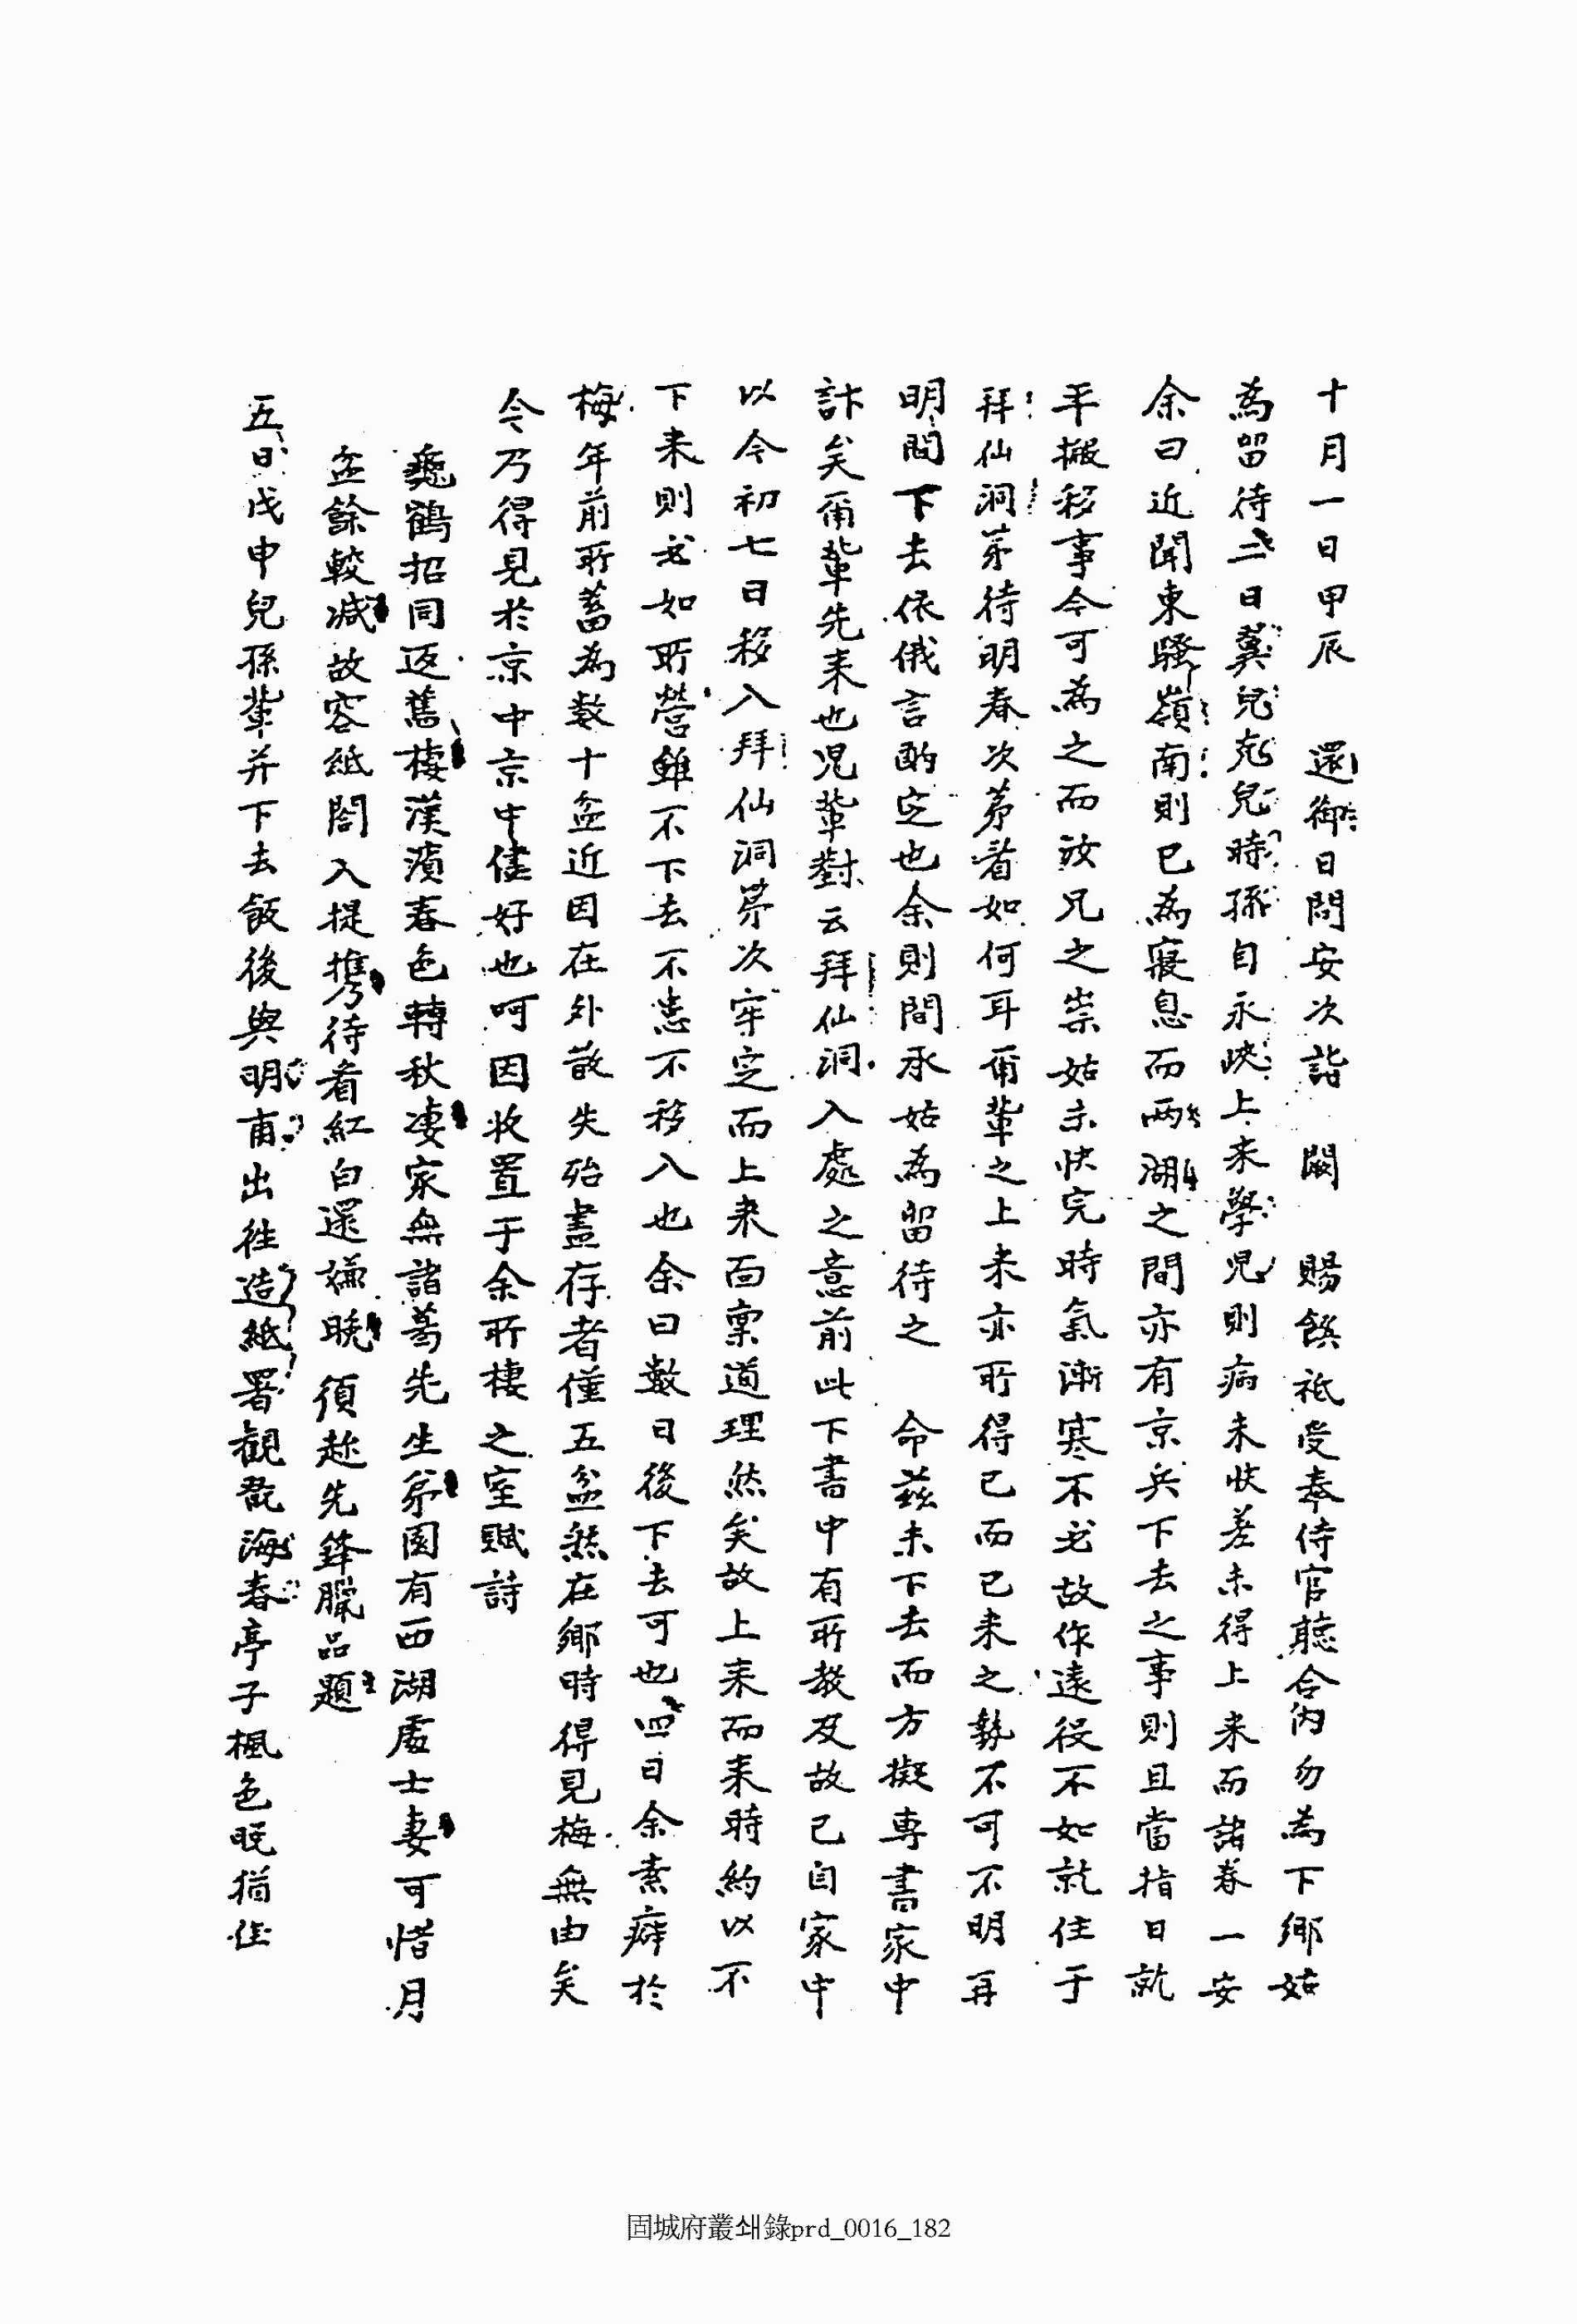 十月一日甲辰 還御日問安次詣 闕 賜饌祗受奉侍官聽令內勿爲下鄕姑
爲留待二日冀兒克兒時孫自永峽上来學兒則病未快差未得上来而諸眷一安
余曰近聞東騷嶺南則已爲寢息而兩湖之間亦有京兵下去之事則且當指日就
平搬移事今可爲之而汝兄之祟姑未快完時氣漸寒不必故作遠役不如就住于
拜仙洞第待明春次第看如何耳甭輩之上来亦所得已而已来之勢不可不明再
明間下去依俄言酌定也余則間承姑爲留待之 命玆未下去而方擬專書家中
計矣甭輩先来也児輩對云拜仙洞入處之意前此下書中有所敎及故已自家中
以今初七日移入拜仙洞第次牢定而上来面稟道理然矣故上来而来時約以不
下来則必如所營雖不下去不患不移入也余曰數日後下去可也四日余素癖於
梅年前所蓄爲數十盆近因在外散失殆盡存者僅五盆然在鄕時得見梅無由矣
今乃得見於京中京中儘好也呵因收置于余所棲之室賦詩
龜鶴招同返舊棲漢濱春色轉秋凄家無諸葛先生第園有西湖處士妻可惜月
盆餘較減故容紙閤入提攜待看紅白還嫌晩須趁先鋒臘品題
五日戊申兒孫輩并下去飯後與明甫出往造紙署觀翫海春亭子楓色晩猶佳
固城府叢쇄錄prd_0016_182